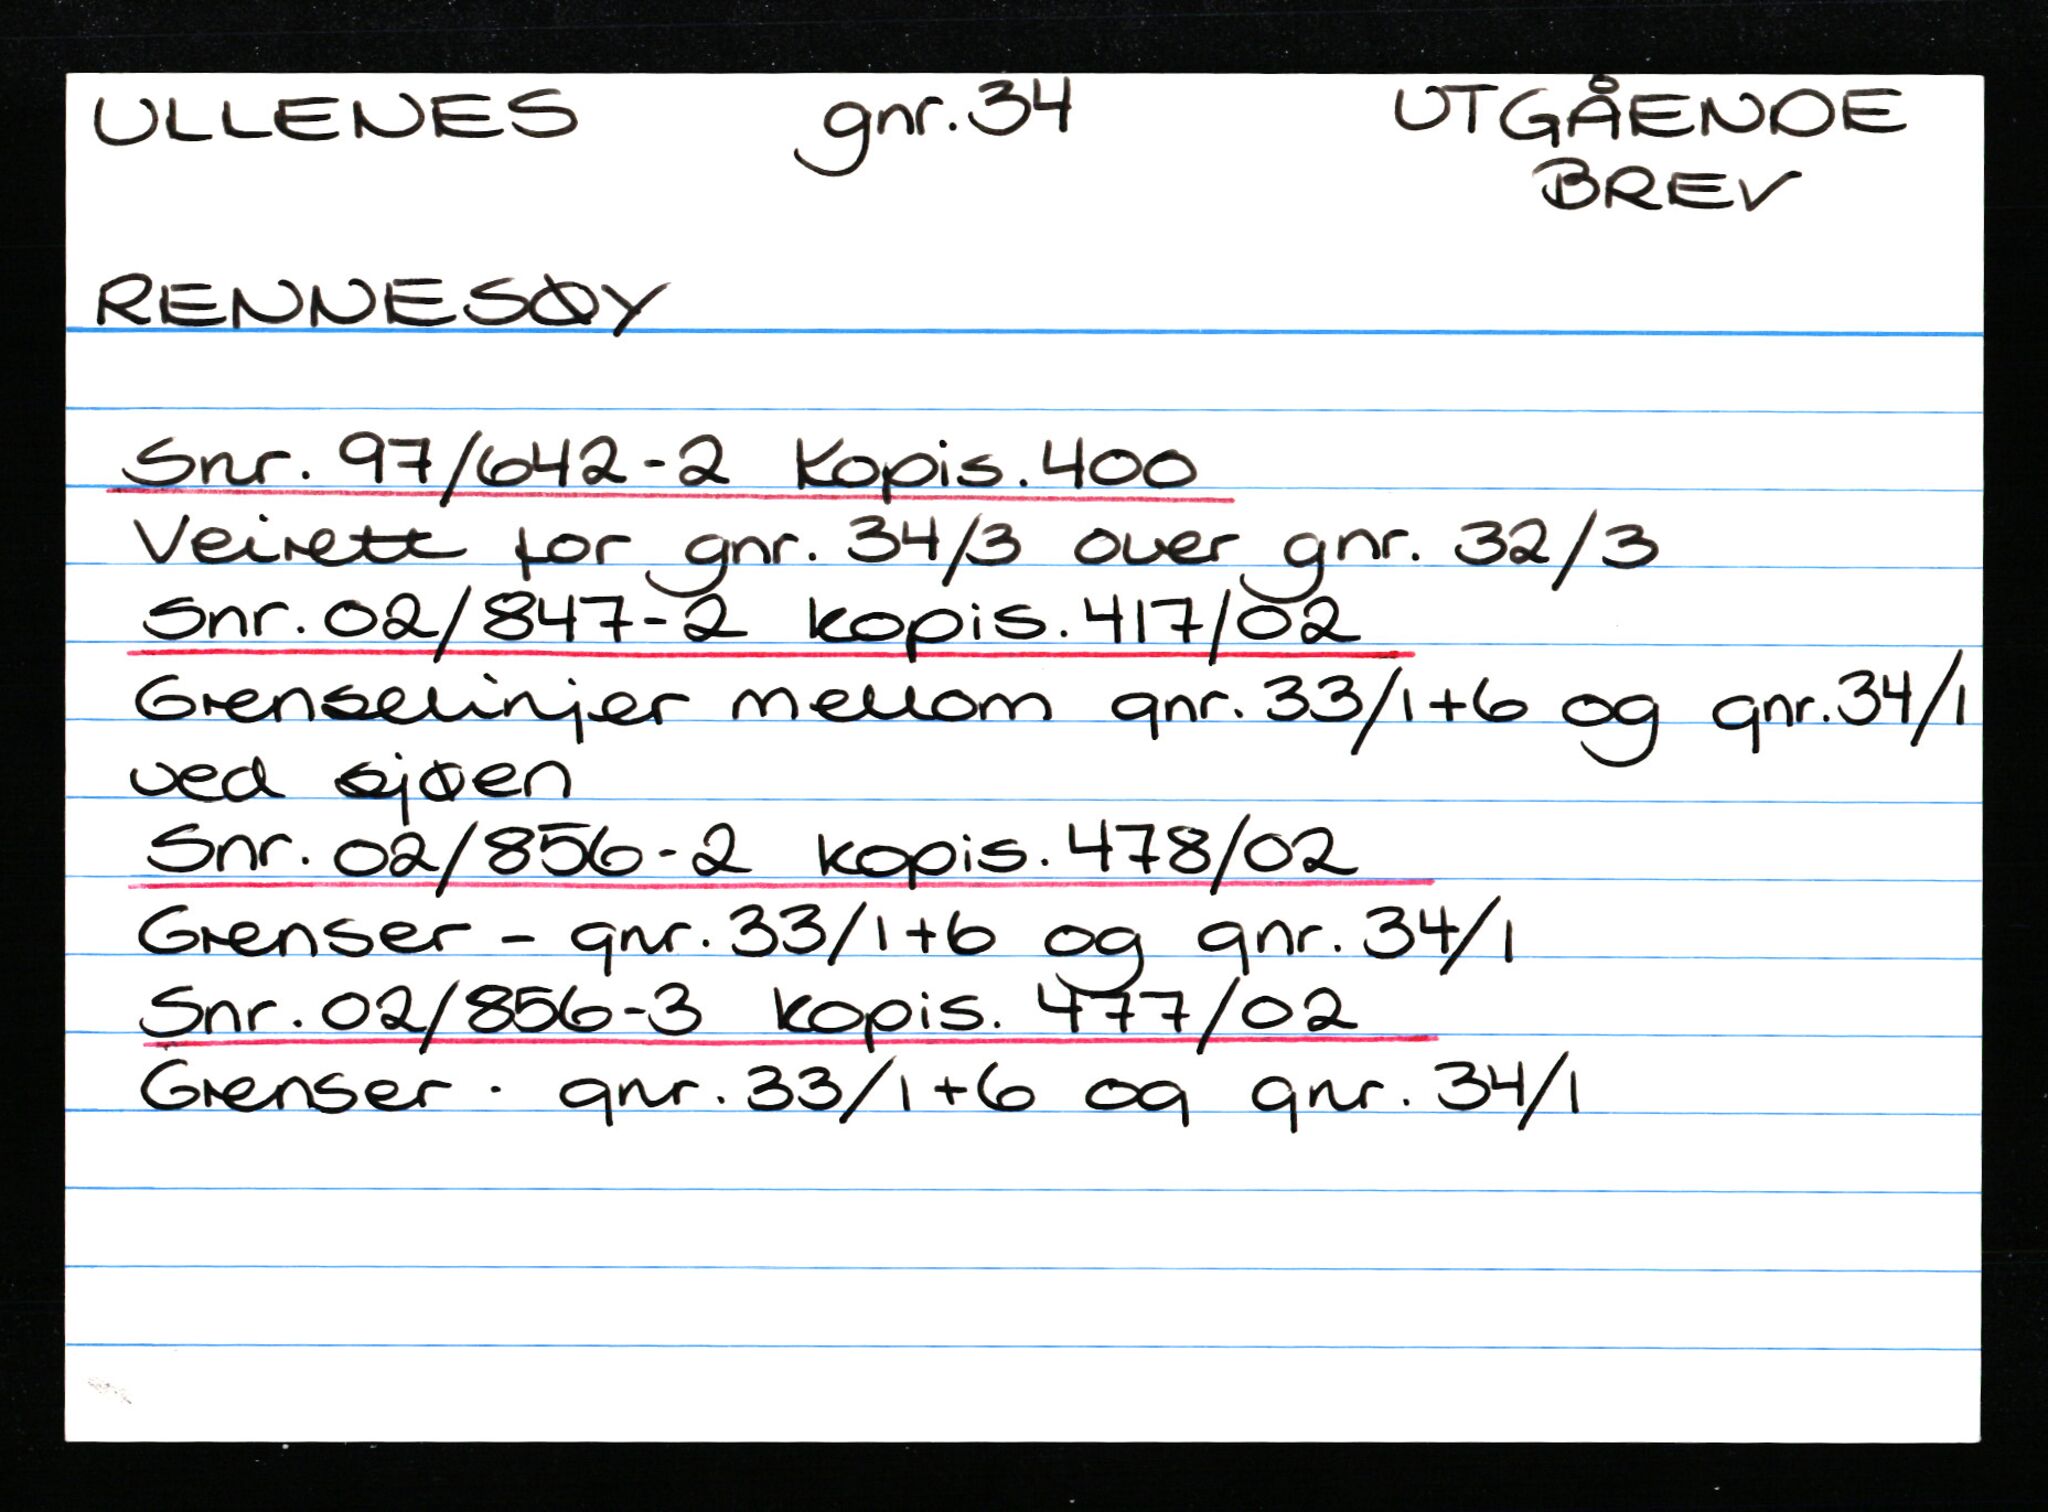 ULLENES gnr. 34 UTGÅENDE
BREV
RENNESØY
Snr. 97/642-2 Kopis. 400
Veirett for gnr. 34/3 over gnr. 32/3
Snr. 02/847-2 kopis. 417/02
Grenselinjer mellom gnr. 33/1+6 og gnr. 34/1
ved sjøen
Snr. 02/856-2 kopis. 478/02
Grenser - gnr. 33/1+6 og gnr. 34/1
Snr. 02/856-3 kopis. 477/02
Grenser - gnr. 33/1+6 og gnr. 34/1